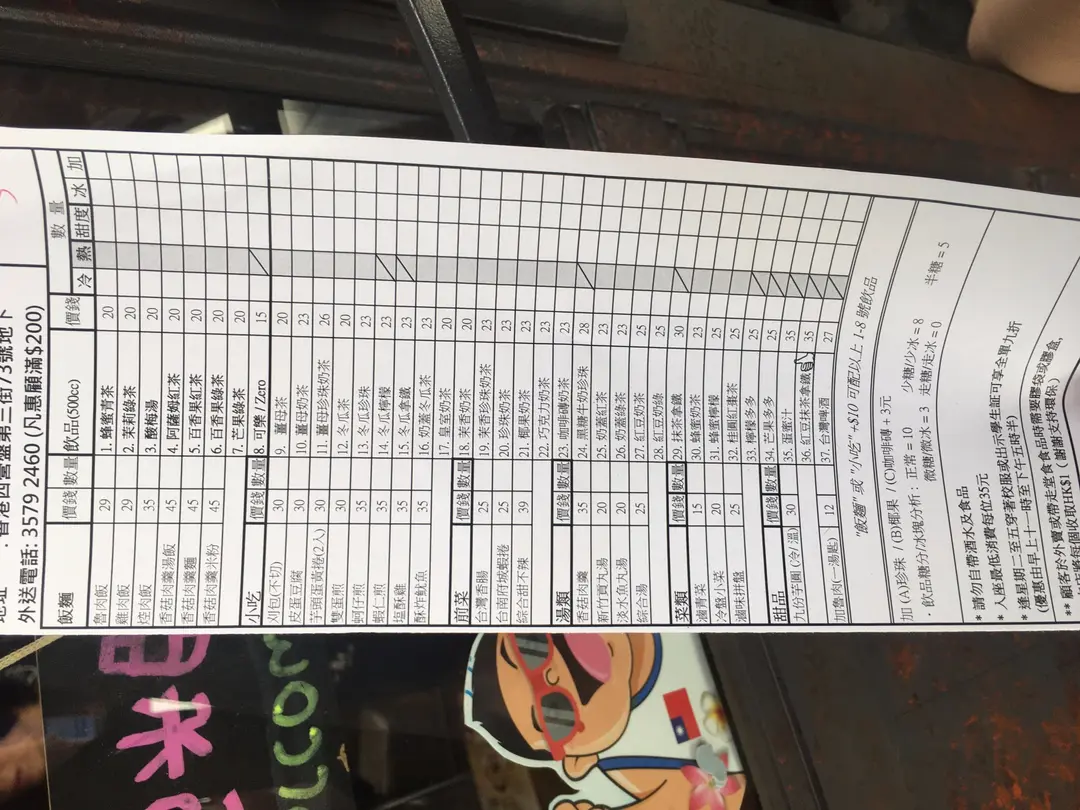 地址 : 香港西營盤第三街73號地下
外送電話: 3579 2460 (凡惠顧滿$200)
數量
飯麵 價錢 數量 飲品(500cc) 價錢 冷 熱 甜度 冰 加
魯肉飯 29 1. 蜂蜜青茶 20
雞肉飯 29 2. 茉莉綠茶 20
焢肉飯 35 3. 酸梅湯 20
香菇肉羹湯飯 45 4. 阿薩姆紅茶 20
香菇肉羹麵 45 5. 百香果紅茶 20
香菇肉羹米粉 45 6. 百香果綠茶 20
7. 芒果綠茶 20
小吃 價錢 數量 8. 可樂 / Zero 15
刈包(不切) 30 9. 薑母茶 20
皮蛋豆腐 30 10. 薑母奶茶 23
芋頭蛋黃捲(2入) 30 11. 薑母珍珠奶茶 26
雙蛋煎 30 12. 冬瓜茶 20
蚵仔煎 35 13. 冬瓜珍珠 23
蝦仁煎 35 14. 冬瓜檸檬 23
塩酥雞 35 15. 冬瓜拿鐵 23
酥炸魷魚 35 16. 奶蓋冬瓜茶 23
17. 皇室奶茶 20
前菜 價錢 數量 18. 茉香奶茶 20
台灣香腸 25 19. 茉香珍珠奶茶 23
台南府城蝦捲 25 20. 珍珠奶茶 20
綜合甜不辣 39 21. 椰果奶茶 23
22. 巧克力奶茶 23
湯類 價錢 數量 23. 咖啡磚奶茶 23
香菇肉羹 35 24. 黑糖牛奶珍珠 28
新竹貢丸湯 20 25. 奶蓋紅茶 23
淡水魚丸湯 20 26. 奶蓋綠茶 23
綜合湯 25 27. 紅豆奶茶 25
28. 紅豆奶綠 25
菜類 價錢 數量 29. 抹茶拿鐵 30
滷青菜 15 30. 蜂蜜奶茶 23
冷盤小菜 20 31. 蜂蜜檸檬 25
滷味拼盤 25 32. 桂圓紅棗茶 25
33. 檸檬多多 25
甜品 價錢 數量 34. 芒果多多 25
九份芋圓 (冷/溫) 30 35. 蛋蜜汁 35
36. 紅豆抹茶拿鐵 35
加魯肉(一湯匙) 12 37. 台灣啤酒 27
"飯麵" 或 "小吃" +$10 可配以上 1-8 號飲品
加 (A)珍珠 / (B)椰果 / (C)咖啡磚 + 3元
· 飲品糖分/冰塊分析 : 正常 = 10 少糖/少冰 = 8 半糖 = 5
微糖/微冰 = 3 走糖/走冰 = 0
* 請勿自帶酒水及食品
* 人座最低消費每位35元
* 逢星期二至五穿著校服或出示學生証可享全單九折
(優惠由早上十一時至下午五時半)
** 顧客於外賣或帶走堂食食品時需要膠袋或膠盒,
本店將每個收取HK$1 ( 謝謝支持環保 )